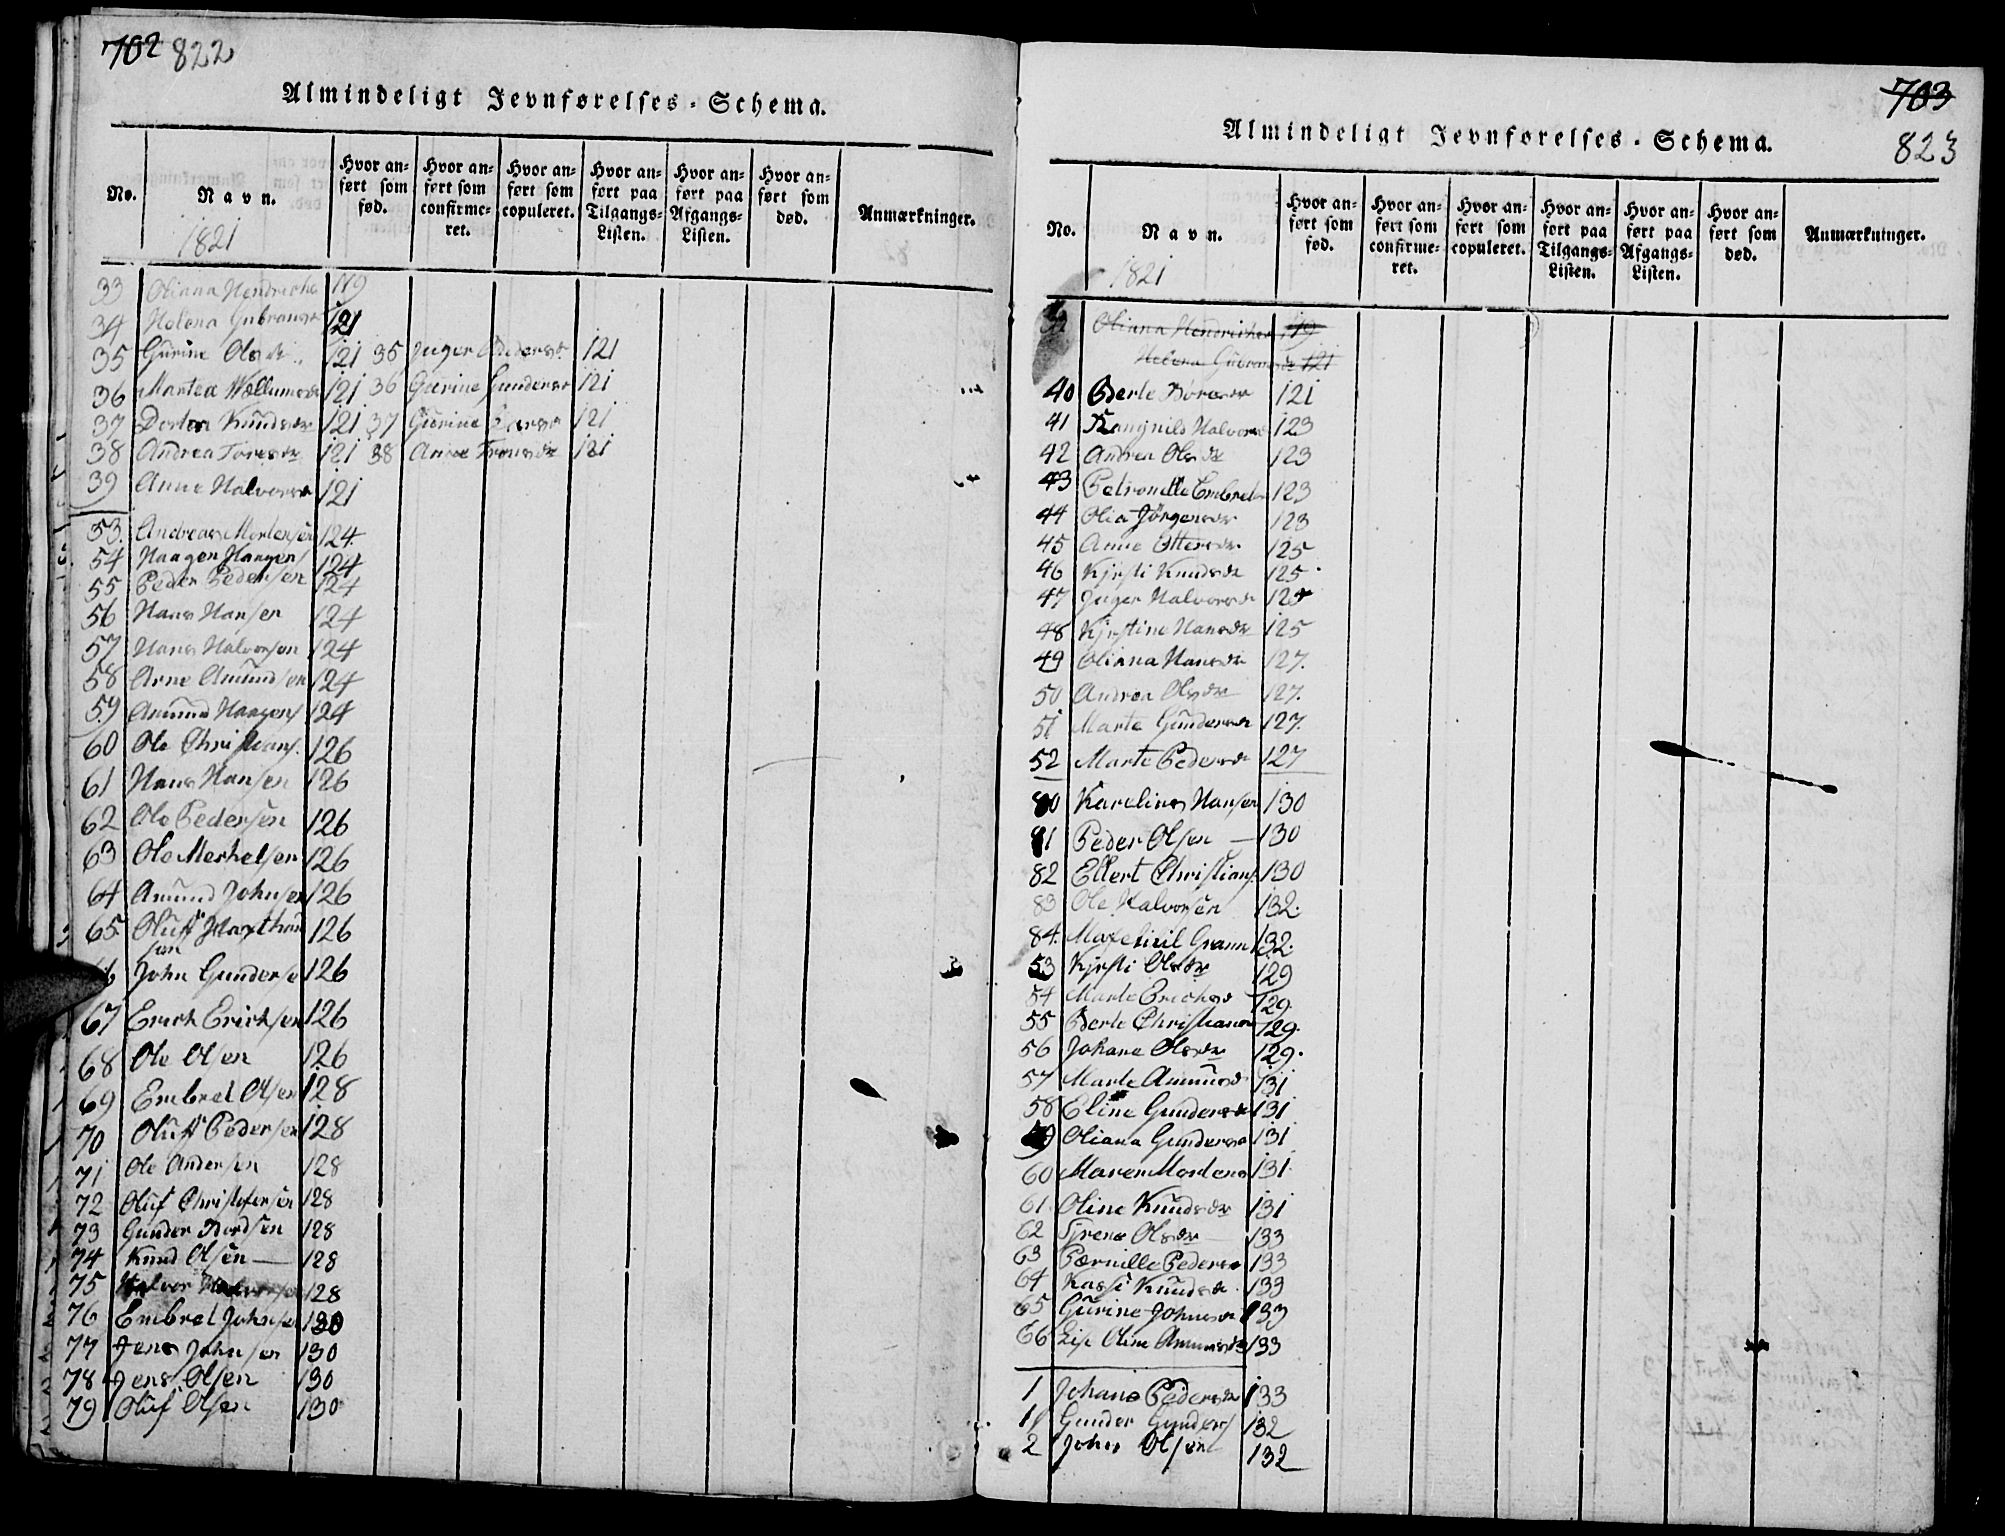 702 822
Almindeligt Jevnførelses-Schema.
No. Navn. Hvor anført som fød. Hvor anført som confirmeret. Hvor anført som copuleret. Hvor anført paa Tilgangs-Listen. Hvor anført paa Afgangs-Listen. Hvor anført som død. Anmærkninger.
1821
33 Oliana 119
34 Helena 121
35 Gurine Olsdr 121 35 Inger Pedersdr 121
36 Martea 121 36 Gurine Gundersdr 121
37 Dortea Knudsdr 121 37 Gurine 121
38 Andrea Toresdr 121 38 Anne 121
39 Anne Halvorsdr 121
53. Andreas Mortensen 124.
54 Haagen Haagens 124
55 Peder Pedersen 124
56 Hans Hansen 124
57 Hans Halvorsen 124
58 Arne Amundsen 124
59 Amund Haagens 124
60 Ole Christians. 126
61 Hans Hansen 126
62 Ole Pedersen 126
63 Ole Merkelsen 126
64 Amund Johnsen 126
65. Oluff 126
John Gunderse 126
67 Erich Erichsen 126
68 Ole Olsen 126
69 Embret Olsen 128
70 Oluff Pedersen 128
71 Ole Andersen 128
72 Oluf Christofersen 128
73 Gunder Bordsen 128
74 Knud Olsen 128
75 Halvor 128
76 Embret Johnsen 130
77 Jens Johnsen 130
78 Jens Olsen 130
79 Oluf Olsen 130
703
823
Almindeligt Jevnførelses-Schema.
No. Navn. Hvor anført som fød. Hvor anført som confirmeret. Hvor anført som copuleret. Hvor anført paa Tilgangs-Listen. Hvor anført paa Afgangs-Listen. Hvor anført som død. Anmærkninger.
1821
Oliana 119
Helena 121
40 Berte 121
41 Rangnild Halvorsd 123
42 Andrea Olsdr 123
43 Petronelle Embret 123
44 Olia Jörgensdr 123
45 Anne Ottersdr 125
46 Kjrsti Knudsdr 125
47 Inger Halvorsdr 125
48 Kjrstine Hansdr 125
49 Oliana Hansdr 127.
50 Andrea Olsdr 127.
51 Marte Gundersdr 127.
52 Marte Pedersdr 127
80 Karelius Hansen 130
81 Peder Olsen 130
82 Ellert Christians. 130
83 Ole Halvorsen 132.
84. 132.
53 Kjrsti Olsdr 129
54 Marte Erichsd 129.
55 Berte Christians 129.
56 Johane Olsdr 129.
57 Marte Amunsd 131
58 Eline Gundersdr 131
59 Oliana Gundersd 131
60 Maren Mortens 131
61 Oline Knudsdr 131
62 Sjrena Olsdr 133
63 Pernille Pedersd 133
64 Kassi Knudsdr 133
65 Gurine Johnsdr 133
66 Lise Oline Amunsdr 133
1 Johane Pedersdr 133
1 Gunder Gunders 132
2 John Olsen 132